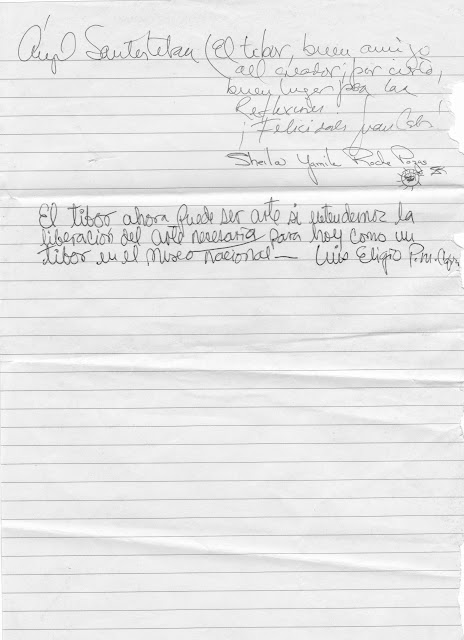 Ángel Santiesteban (El tibor, buen amigo
del creador, por cierto,
buen lugar para las
Reflexiones
¡Felicidades Juan Carlos!
Sheila Yamila Roche Pozas
El tibor ahora puede ser arte si entendemos la
liberación del arte necesaria para hoy como un
tibor en el Museo Nacional — Luis Eligio P.M.